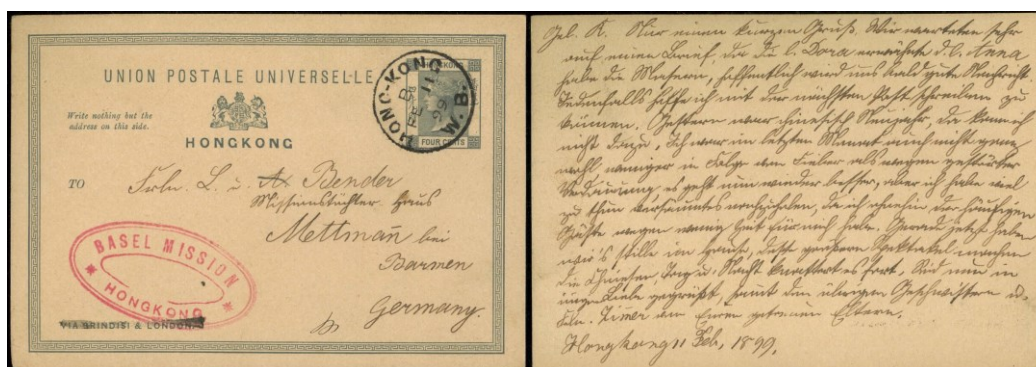 UNION POSTALE UNIVERSELLE
HONGKONG
Write nothing but the
address on this side.
HONGKONG
FOUR CENTS
HONG-KONG
D
FE 11
99
W.B.
TO
Frln. L. u. A Bender
Missionstöchter Haus
Mettmañ bei
Barmen
Germany.
BASEL MISSION
HONGKONG
VIA BRINDISI & LONDON.
Gel. K. Nur einen kurzen Gruß. Wir warteten sehr
auf einen Brief, da die l. Dora erwähnte d. l. Anna
habe die Masern, hoffentlich wird uns bald gute Nachricht
Jedenfalls hoffe ich mit der nächsten Post schreiben zu
können. Gestern war chinesisch Neujahr, da kam ich
nicht dazu. Ich war im letzten Monat auch nicht ganz
wohl weniger in Folge von Fieber als wegen gestörter
Verdauung es geht nun wieder besser, aber ich habe viel
zu thun versäumtes nachzuholen, da ich ohnehin der häufigen
Gäste wegen wenig Zeit für mich habe. Gerade jetzt haben
wir's stille im Hause, desto größern Spektakel machen
die Chinesen, Tag u. Nacht knattert es fort. Seid nun in
inniger Liebe gegrüßt, samt den übrigen Geschwistern u.
Frln. von Euren getreuen Eltern.
Hongkong 11 Feb. 1899.